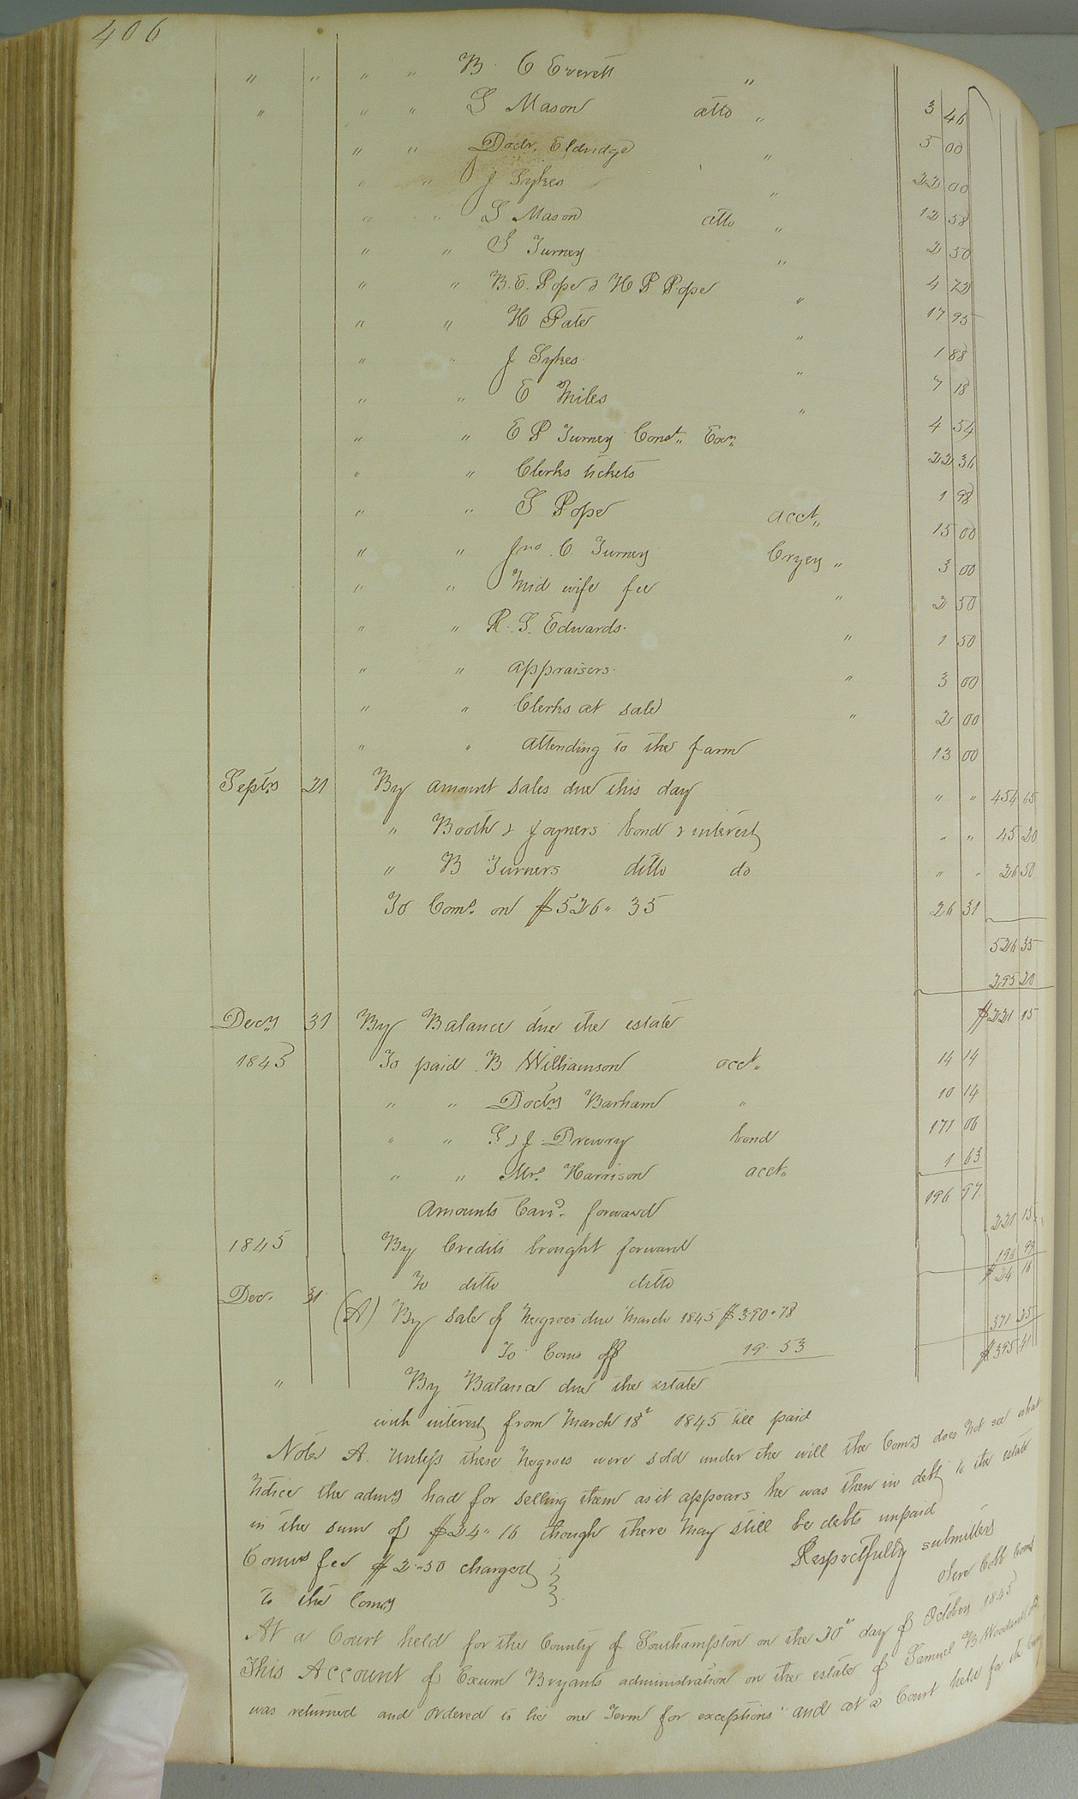 406
" " " " B. C Everett "
" " " S Mason atto " 3 46
" " Doctr. Eldridge " 5 00
" " J Sykes " 22 00
" " S Mason atto " 12 58
" " S Turney " 2 50
" " B. E. Pope & H P Pope " 4 72
" " H Pate " 17 95
" " J Sykes " 1 88
" " E Miles " 7 18
" " E P Turney Const. Exn. 4 54
" " Clerks tickets 22 36
" " S Pope acct. 1 98
" " Jno. C Turney Cryer " 15 00
" " Mid wife fee " 3 00
" " R. S. Edwards. " 2 50
" " appraisers. " 1 50
" " Clerks at sale " 3 00
" " attending to the farm 2 00
13 00
Septr 21 By amount sales due this day " " 454 65
" Booth & Joyners bond & interest " " 45 20
" B Turners ditto do " " 26 50
To Coms. on $526.. 35 26 31
526 35
295 20
Decr 31 By Balance due the estate $221 15
1843 To paid B Williamson acct. 14 14
" " Doctr Barham " 10 14
" " S & J Drewry bond 171 06
" " Mrs. Harrison acct. 1 63
Amounts Card. forward 196 97
221 15
1845 By Credits brought forward
To ditto ditto 196 99
$24 16
Dec. 31 (A) By sale of Negroes due March 1845 $390.78
To Coms off 19. 53 371 25
" By Balance due the estate $395 41
with interest from March 18th 1845 till paid
Note A. Unless these Negroes were sold under the will the Comr does not see what
Notice the admr had for selling them as it appears he was then in debt to the estate
in the sum of $24.. 16 though there may still be debts unpaid
Coms fee $2-50 charged Respectfully submitted
to the Comr
At a Court held for the County of Southampton on the 20th day of October 1845
This Account of Exum Bryants administration on the estate of Samuel B
was returned and ordered to lie one Term for exceptions" and at a Court held for the